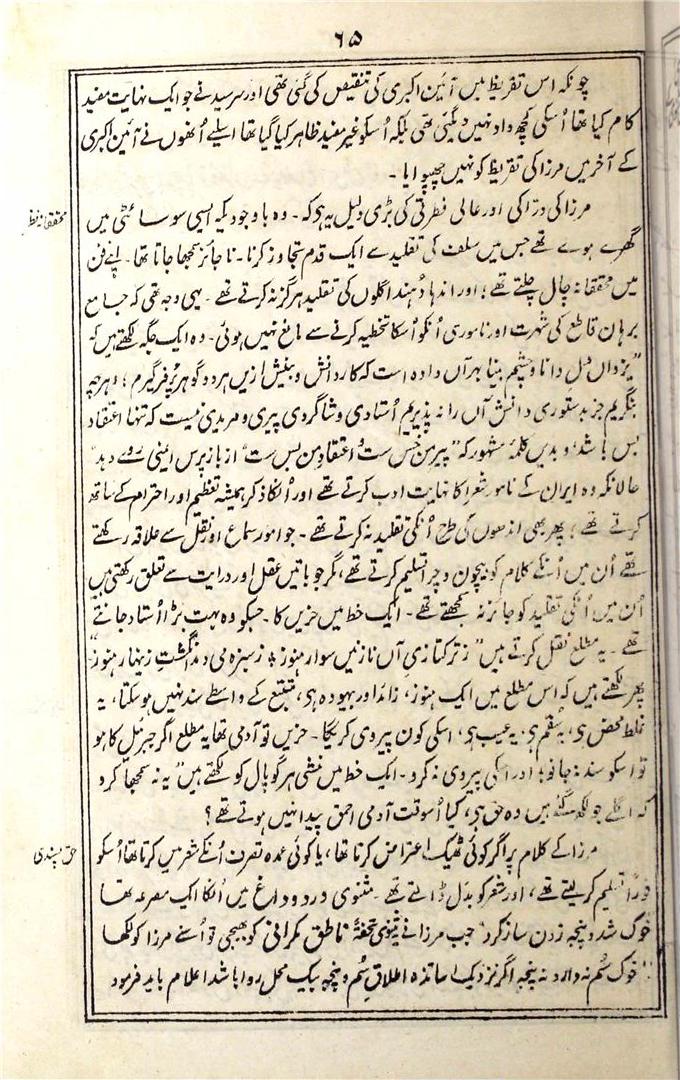 ۶۵
چونکہ اس تقریظ میں آئین اکبری کی تنقیص کی گئی تھی اور سرسید نے جو ایک نہایت مفید
کام کیا تھا اُسکی کچھ داد نہیں دیگئی تھی بلکہ اُسکو غیر مفید ظاہر کیا گیا تھا اسلیے اُنھوں نے آئین اکبری
کے آخر میں مرزا کی تقریظ کو نہیں چھپوایا ۔
مرزا کی درّاکی اور عالی فطرتی کی بڑی دلیل یہ ہی کہ ۔ وہ باوجودیکہ ایسی سوسائٹی میں
محققانہ
گھرے ہوے تھے جس میں سلف کی تقلید سے ایک قدم تجاوز کرنا ۔ ناجائز سمجھا جاتا تھا ۔ اپنے فن
میں محققانہ چال چلتے تھے ؛ اور اندھا دُھند اگلوں کی تقلید ہرگز نہ کرتے تھے ۔ یہی وجہ تھی کہ جامع
برہان قاطع کی شہرت اور ناموری اُنکو اُسکا تخطیہ کرنے سے مانع نہیں ہوئی ۔ وہ ایک جگہ لکھتے ہیں کہ
”یزداں دلِ دانا و چشمِ بینا بہرآں دادہ است کہ کارِ دانش و بینش ازیں ہردو گوہر پُرفر گیرم ؛ و ہرچہ
بنگریم جز بدستوری دانش آں را نہ پذیریم اُستادی و شاگردی پیری و مریدی نیست کہ تنہا اعتقاد
بس باشد ؛ و بدیں کلمۂ مشہور کہ ”پیرِ من خس ست اعتقادِ من بس ست“ از باز پرس ایمنی روے دہد“
حالانکہ وہ ایران کے نامور شعرا کا نہایت ادب کرتے تھے اور اُنکا ذکر ہمیشہ تعظیم اور احترام کے ساتھ
کرتے تھے ؛ پھر بھی اندھوں کی طرح اُنکی تقلید نہ کرتے تھے ۔ جو امور سماع اور نقل سے علاقہ رکھتے
تھے اُن میں اُنکے کلام کو بیچون و چرا تسلیم کرتے تھے ، مگر جو باتیں عقل اور درایت سے تعلق رکھتی ہیں
اُن میں اُنکی تقلید کو جائز نہ سمجھتے تھے ۔ ایک خط میں حزیں کا ۔ جسکو وہ بہت بڑا اُستاد جانتے
تھے ۔ یہ مطلع نقل کرتے ہیں ” ز ترکتازیِ آں نازنیں سوار ہنوز * ز سبزہ می دمد انگشتِ زینہار ہنوز“
پھر لکھتے ہیں کہ اس مطلع میں ایک ہنوز ، زائد اور بیہودہ ہی ، متبع کے واسطے سند نہیں ہوسکتا ، یہ
غلطِ محض ہی ، یہ سقم ہی ، یہ عیب ہی ، اسکی کون پیروی کریگا ۔ حزیں تو آدمی تھا یہ مطلع اگر جبرئیل کا ہو
تو اسکو سند نہ جانو ؛ اور اسکی پیروی نہ کرو ۔ ایک خط میں منشی ہرگوپال کو لکھتے ہیں ”یہ نہ سمجھا کرو
کہ اگلے جو لکھ گئے ہیں وہ حق ہی ، کیا اُسوقت آدمی احمق پیدا نہیں ہوتے تھے ؟
مرزا کے کلام پر اگر کوئی ٹھیک اعتراض کرتا تھا ، یا کوئی عمدہ تصرف اُنکے شعر میں کرتا تھا اُسکو
حق پسندی
فوراً تسلیم کرلیتے تھے ، اور شعر کو بدل ڈالتے تھے ۔ مثنوی درد و داغ میں اُنکا ایک مصرعہ تھا
خوک شد و پنجہ زدن ساز کرد“ جب مرزا نے یہ مثنوی تحفۃً ناطق مکرانی کو بھیجی تو اُسنے مرزا کو لکھا
”خوک سُم نہ دارد نہ پنجہ اگر نزدیک اساتذہ اطلاقِ سُم و پنجہ بیک محل روا باشد اعلام باید فرمود